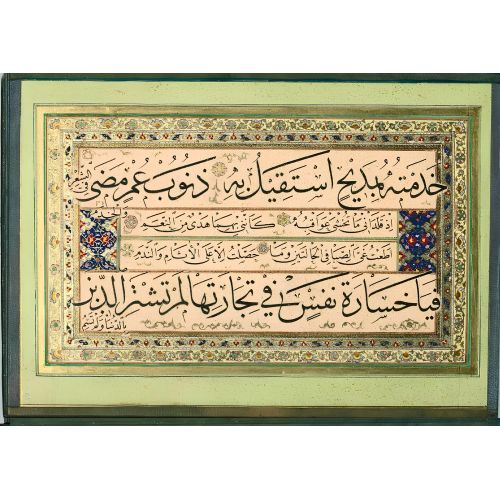 خدمته بمديح استقيل به ذنوب عمر مضى في الشعر
والخدم
اذ قلداني ما تخشى عواقبه كأنني بهما هدي من النعم
اطعت غي الصبا في الحالتين وما حصلت الا على الآثام والندم
فيا خسارة نفس في تجارتها لم تشتر الدين
بالدنيا ولم تسم